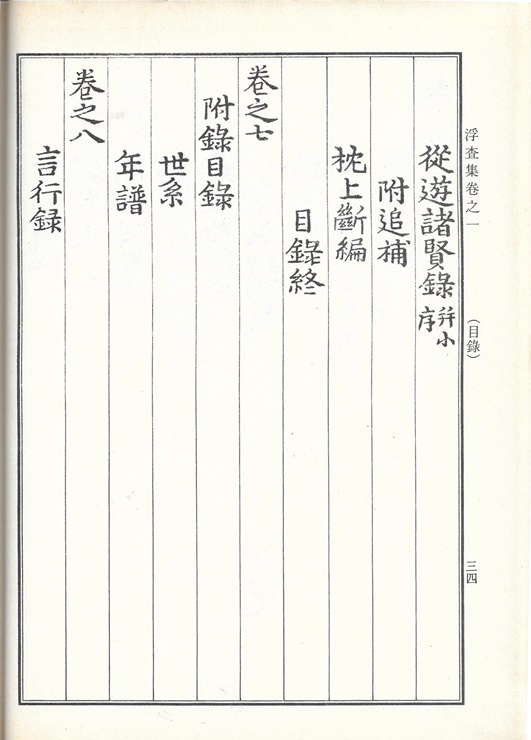 浮查集卷之一
(目錄)
三四
從遊諸賢錄 幷小序
附追補
枕上斷編
目錄終
卷之七
附錄目錄
世系
年譜
卷之八
言行録